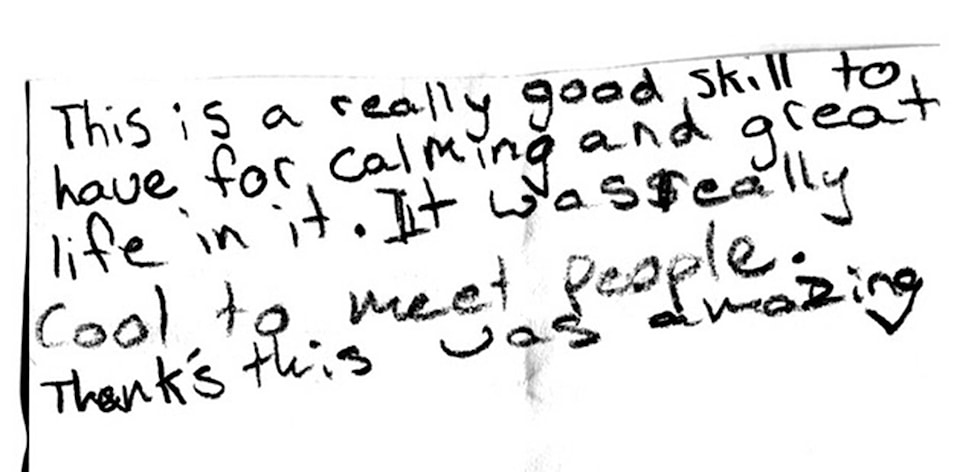 This is a really good skill to
have for calming and great
life in it. It was really
Cool to meet people.
Thank's this was amazing